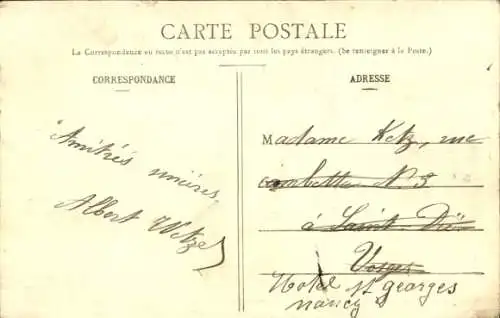 CARTE POSTALE
La Correspondance au recto n'est pas acceptée par tous les pays étrangers. (Se renseigner à la Poste.)
CORRESPONDANCE
Amitiés sincères,
Albert
ADRESSE
Madame Ketz, rue
Gambetta N° 3
à Saint-Dié
Vosges
Hotel St Georges
nancy